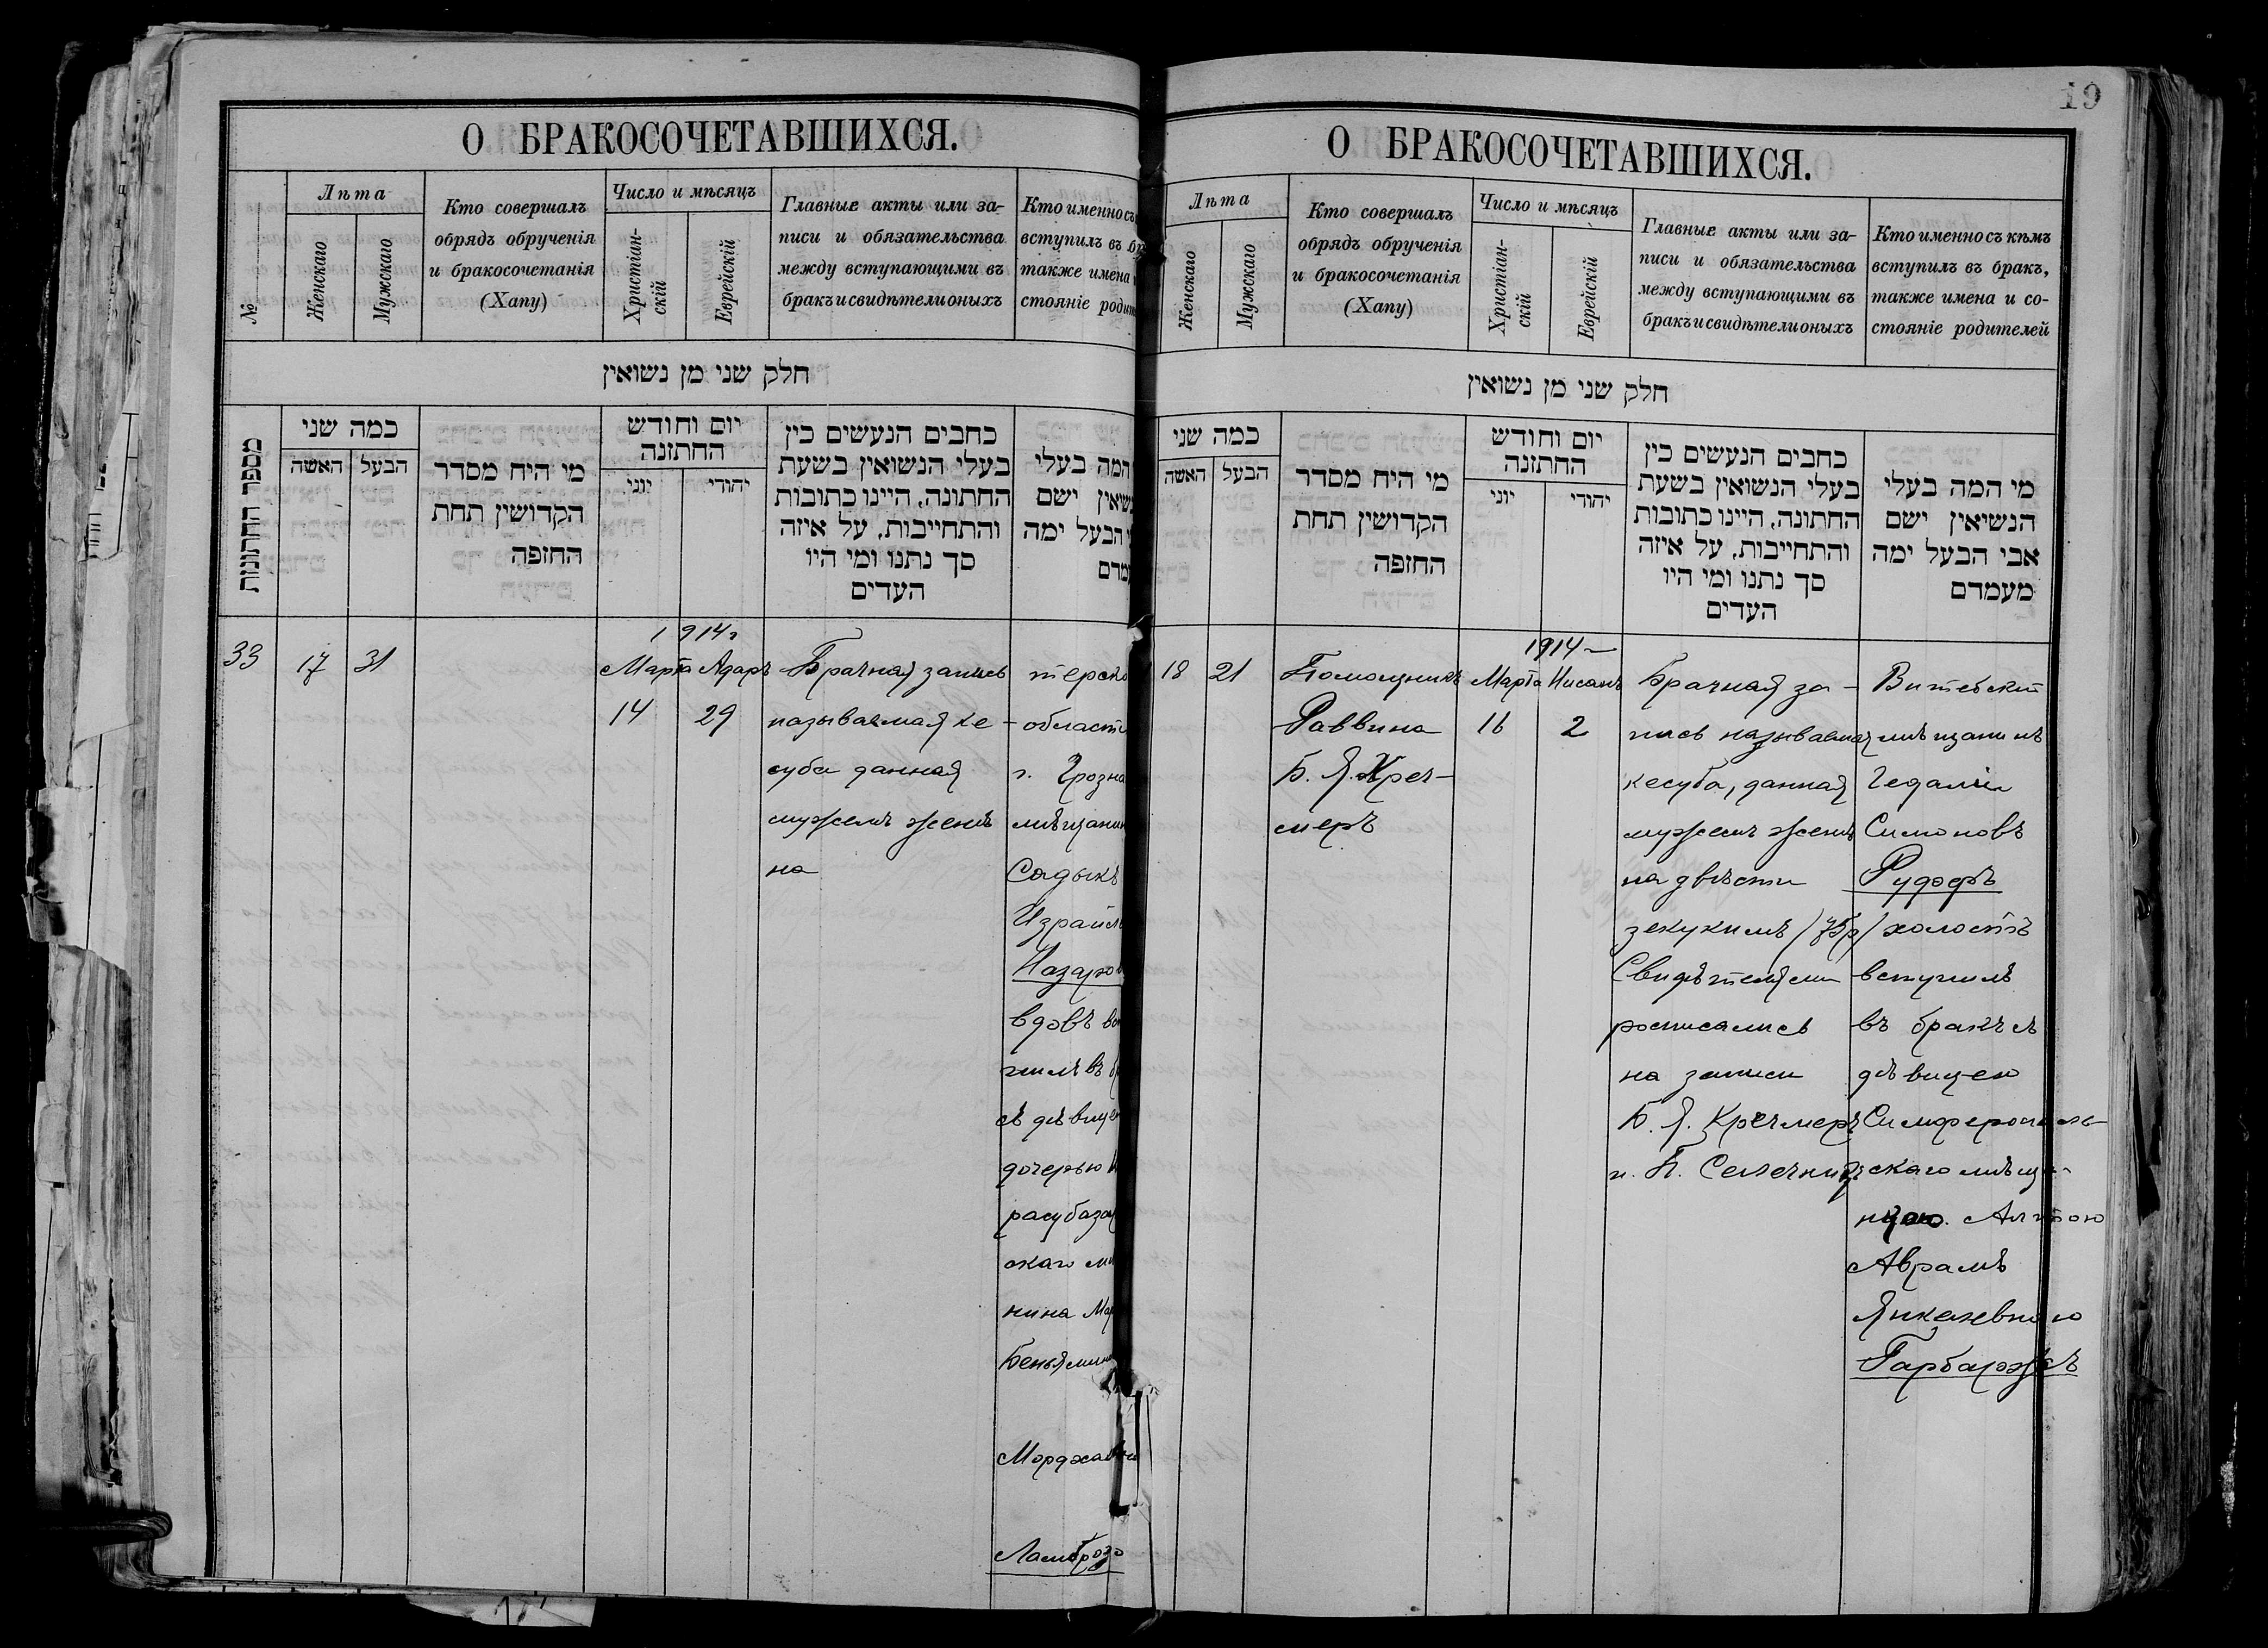 О БРАКОСОЧЕТАВШИХСЯ.
№
Лѣта
Женскаго
Мужскаго
Кто совершалъ
обрядъ обрученія
и бракосочетанія
(Хапу)
Число и мѣсяцъ
Христіан-
скій
Еврейскій
Главные акты или за-
писи и обязательства
между вступающими въ
бракъ и свидѣтели оныхъ
Кто именно съ
вступилъ въ бр
также имена и
стояніе родит
חלק שני מן נשואין
מספר החתונות
כמה שני
האשה
הבעל
מי היח מסדר
הקדושין תחת
החופה
יום וחודש
החתונה
יוני
יהודי
כתבים הנעשים בין
בעלי הנשואין בשעת
החתונה, היינו כתובות
והתחייבות, על איזה
סך נתנו ומי היו
העדים
המה בעלי
נשיאין ישם
הבעל ימה
עמדם
33
17
31
1914 г
Марта Адаръ
14 29
Брачная запись
называемая ке-
суба данная
мужемъ женѣ
на
терско
области
г. Грозна
мѣщанин
Садыкъ
Израил
Назаро
вдовъ вс
пилъ въ б
съ дѣвице
дочерью
расубаза
скаго мѣ
нина Мар
Беньямин
Мордхаев
Ламброзо
19
О БРАКОСОЧЕТАВШИХСЯ.
Лѣта
Женскаго
Мужскаго
Кто совершалъ
обрядъ обрученія
и бракосочетанія
(Хапу)
Число и мѣсяцъ
Христіан-
скій
Еврейскій
Главные акты или за-
писи и обязательства
между вступающими въ
бракъ и свидѣтели оныхъ
Кто именно съ кѣмъ
вступилъ въ бракъ,
также имена и со-
стояніе родителей
חלק שני מן נשואין
כמה שני
האשה
הבעל
מי היח מסדר
הקדושין תחת
החופה
יום וחודש
החתונה
יוני
יהודי
כתבים הנעשים בין
בעלי הנשואין בשעת
החתונה, היינו כתובות
והתחייבות, על איזה
סך נתנו ומי היו
העדים
מי המה בעלי
הנשיאין ישם
אבי הבעל ימה
מעמדם
18
21
Помощникъ
Раввина
Б. Я. Креч-
меръ
1914
Марта Нисанъ
16 2
Брачная за-
пись называемая
кесуба, данная
мужемъ женѣ
на двѣсти
зекукимъ (75р)
Свидѣтелями
росписались
на записи
Б. Я. Кречмеръ
и П. Селечникъ
Витебскій
мѣщанинъ
Гедалія
Симоновъ
Рудефъ
холостъ
вступилъ
въ бракъ съ
дѣвицею
Симферополь-
скаго мѣща-
Аврамъ
Янкелевною